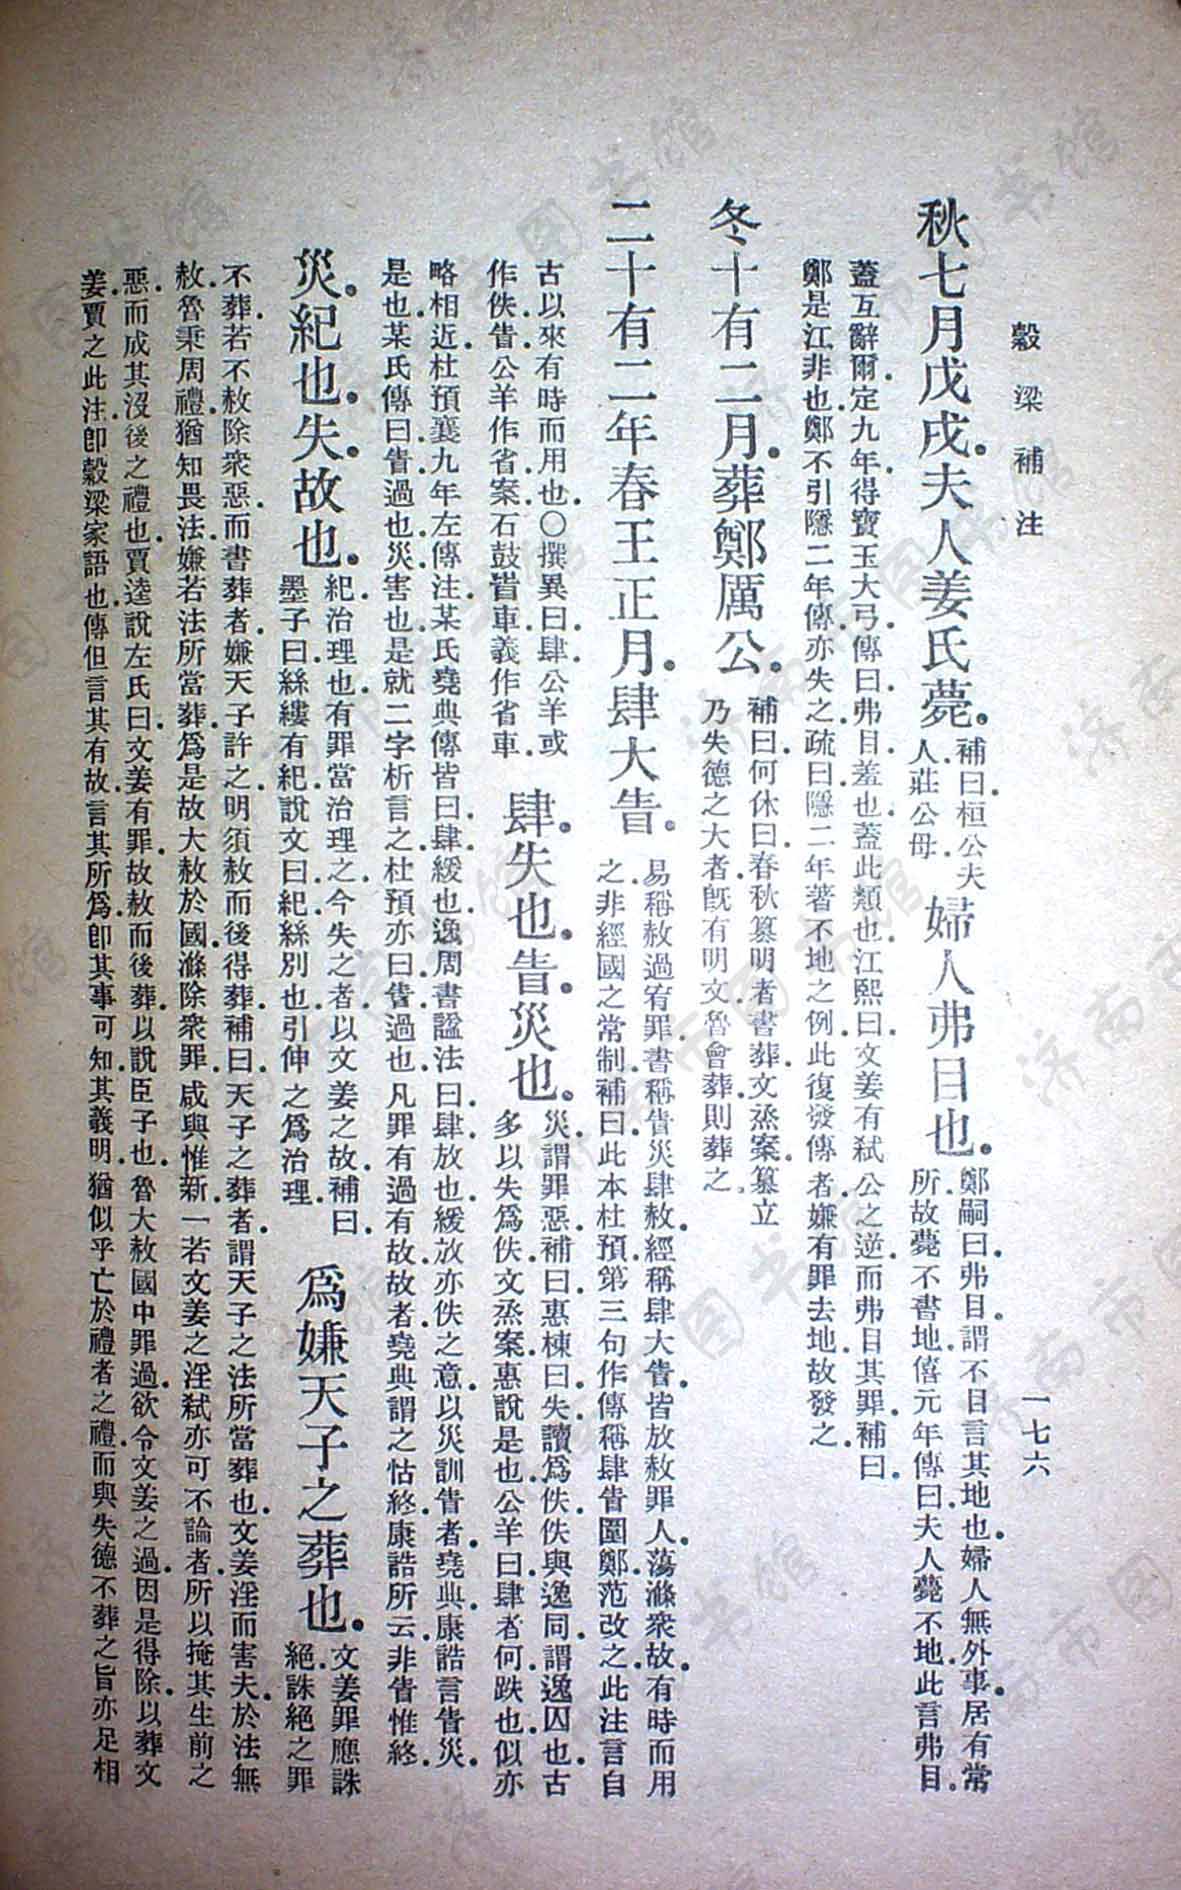 穀梁補注
一七六
秋七月戊戌夫人姜氏薨。補曰桓公夫人莊公母。婦人弗目也。鄭嗣曰弗目謂不目言其地也婦人無外事居有常所故薨不書地僖元年傳曰夫人薨不地此言弗目。
蓋互辭爾定九年得寶玉大弓傳曰弗目羞也蓋此類也江熙曰文姜有弒公之逆而弗目其罪補曰
鄭是江非也鄭不引隱二年傳亦失之疏曰隱二年著不地之例此復發傳者嫌有罪去地故發之
冬十有二月葬鄭厲公。補曰何休曰春秋篡明者書葬文烝案篡立乃失德之大者既有明文魯會葬則葬之
二十有二年春王正月肆大眚。易稱赦過宥罪書稱眚災肆赦經稱肆大眚皆放赦罪人蕩滌衆故有時而用之非經國之常制補曰此本杜預第三句作傳稱肆眚圍鄭范改之此注言自
古以來有時而用也○撰異曰肆公羊或作佚眚公羊作省案石鼓眚車義作省車 肆。失也。眚。災也。災謂罪惡補曰惠棟曰失讀爲佚佚與逸同謂逸囚也古多以失爲佚文烝案惠說是也公羊曰肆者何跌也似亦
略相近杜預襄九年左傳注某氏堯典傳皆曰肆緩也逸周書諡法曰肆放也緩放亦佚之意以災訓眚者堯典康誥言眚災
是也某氏傳曰眚過也災害也是就二字析言之杜預亦曰眚過也凡罪有過有故故者堯典謂之怙終康誥所云非眚惟終
災。紀也。失。故也。紀治理也有罪當治理之今失之者以文姜之故補曰墨子曰絲縷有紀說文曰紀絲別也引伸之爲治理 爲嫌天子之葬也。文姜罪應誅絕誅絕之罪
不葬若不赦除衆惡而書葬者嫌天子許之明須赦而後得葬補曰天子之葬者謂天子之法所當葬也文姜淫而害夫於法無
赦魯秉周禮猶知畏法嫌若法所當葬爲是故大赦於國滌除衆罪咸與惟新一若文姜之淫弒亦可不論者所以掩其生前之
惡而成其沒後之禮也賈逵說左氏曰文姜有罪故赦而後葬以說臣子也魯大赦國中罪過欲令文姜之過因是得除以葬文
姜賈之此注卽穀梁家語也傳但言其有故言其所爲卽其事可知其義明猶似乎亡於禮者之禮而與失德不葬之旨亦足相